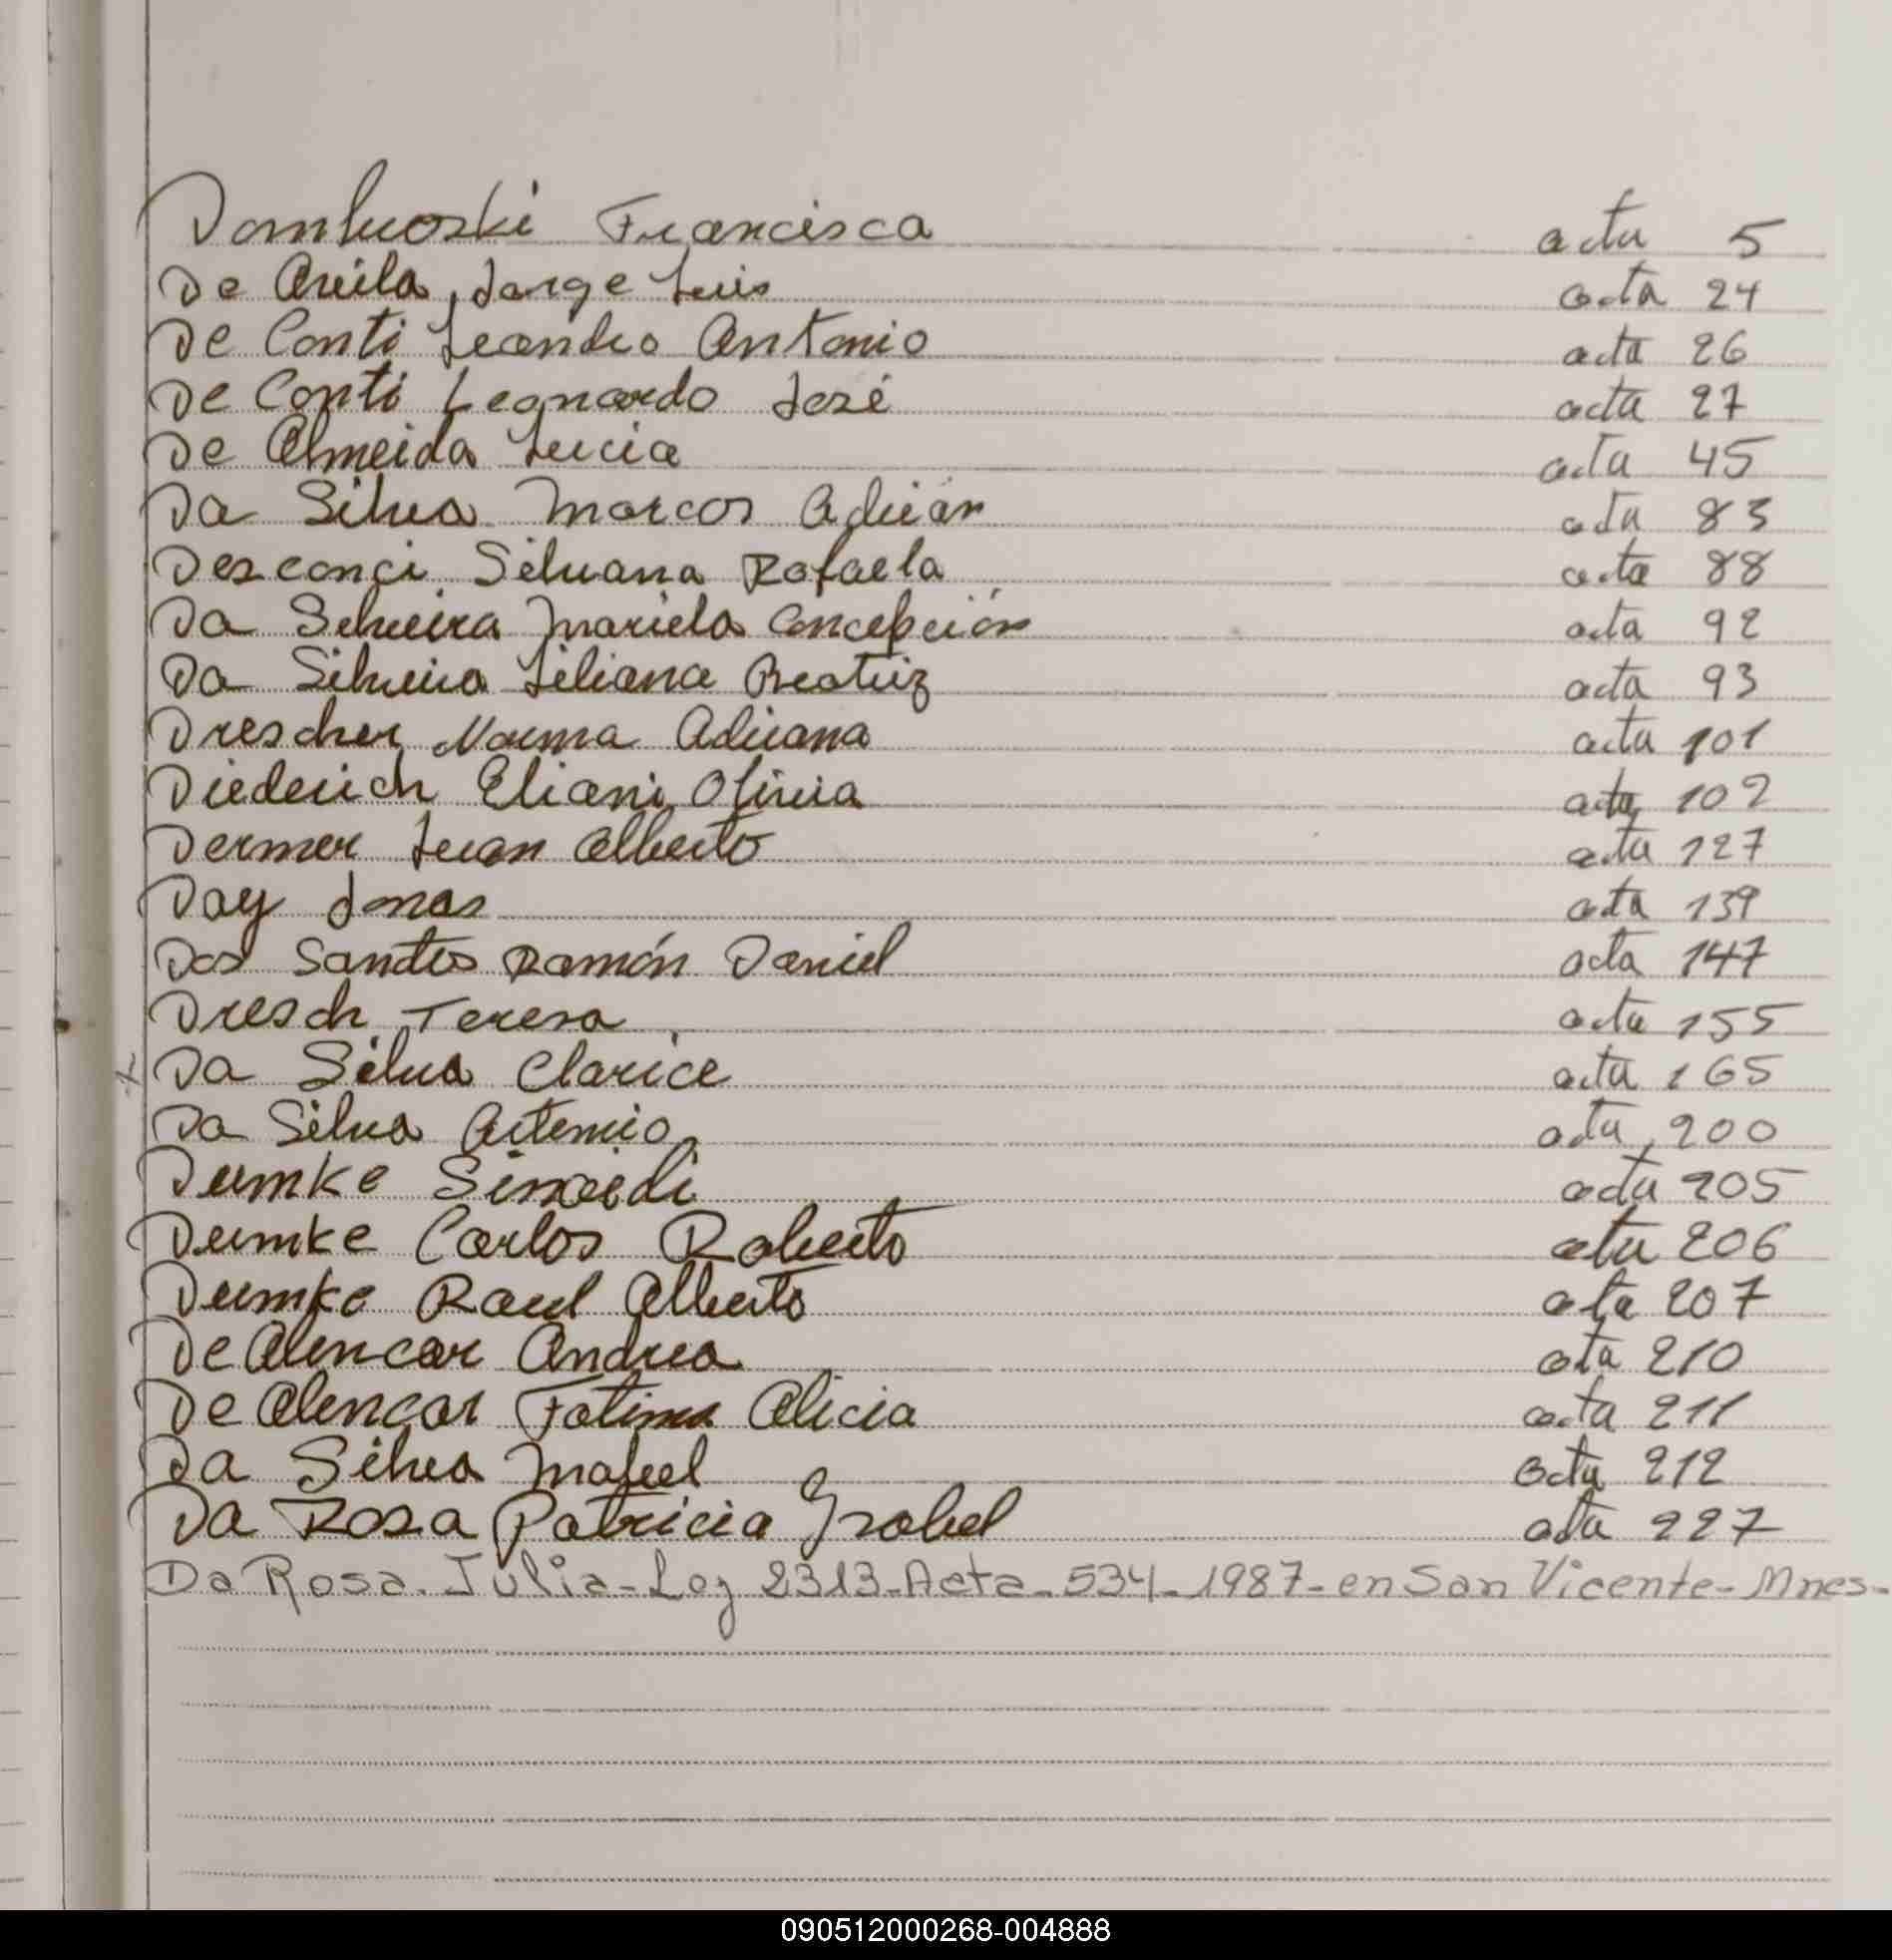 Dombroski Francisca acta 5
De Avila, Jorge Luis acta 24
De Conti Leandro Antonio acta 26
De Conti Leonardo José acta 27
De Almeida Lucia acta 45
Da Silva Marcos Adrián acta 83
Desconci Silvana Rafaela acta 88
Da Silveira Mariela Concepción acta 92
Da Silveira Liliana Beatriz acta 93
Drescher Norma Adriana acta 101
Diederich Eliani Olivia acta 102
Dermer Juan Alberto acta 127
Day Jonas acta 139
Dos Santos Ramón Daniel acta 147
Dresch Teresa acta 155
Da Silva Clarice acta 165
Da Silva Artemio acta 200
Dumke acta 205
Dumke Carlos Roberto acta 206
Dumke Raul Alberto acta 207
De Alencar Andrea acta 210
De Alencar Fatima Alicia acta 211
Da Silva Mabel acta 212
Da Rosa Patricia Ysabel acta 227
Da Rosa. Julia-Ley 2313-Acta-534-1987-en San Vicente-Mnes-
090512000268-004888